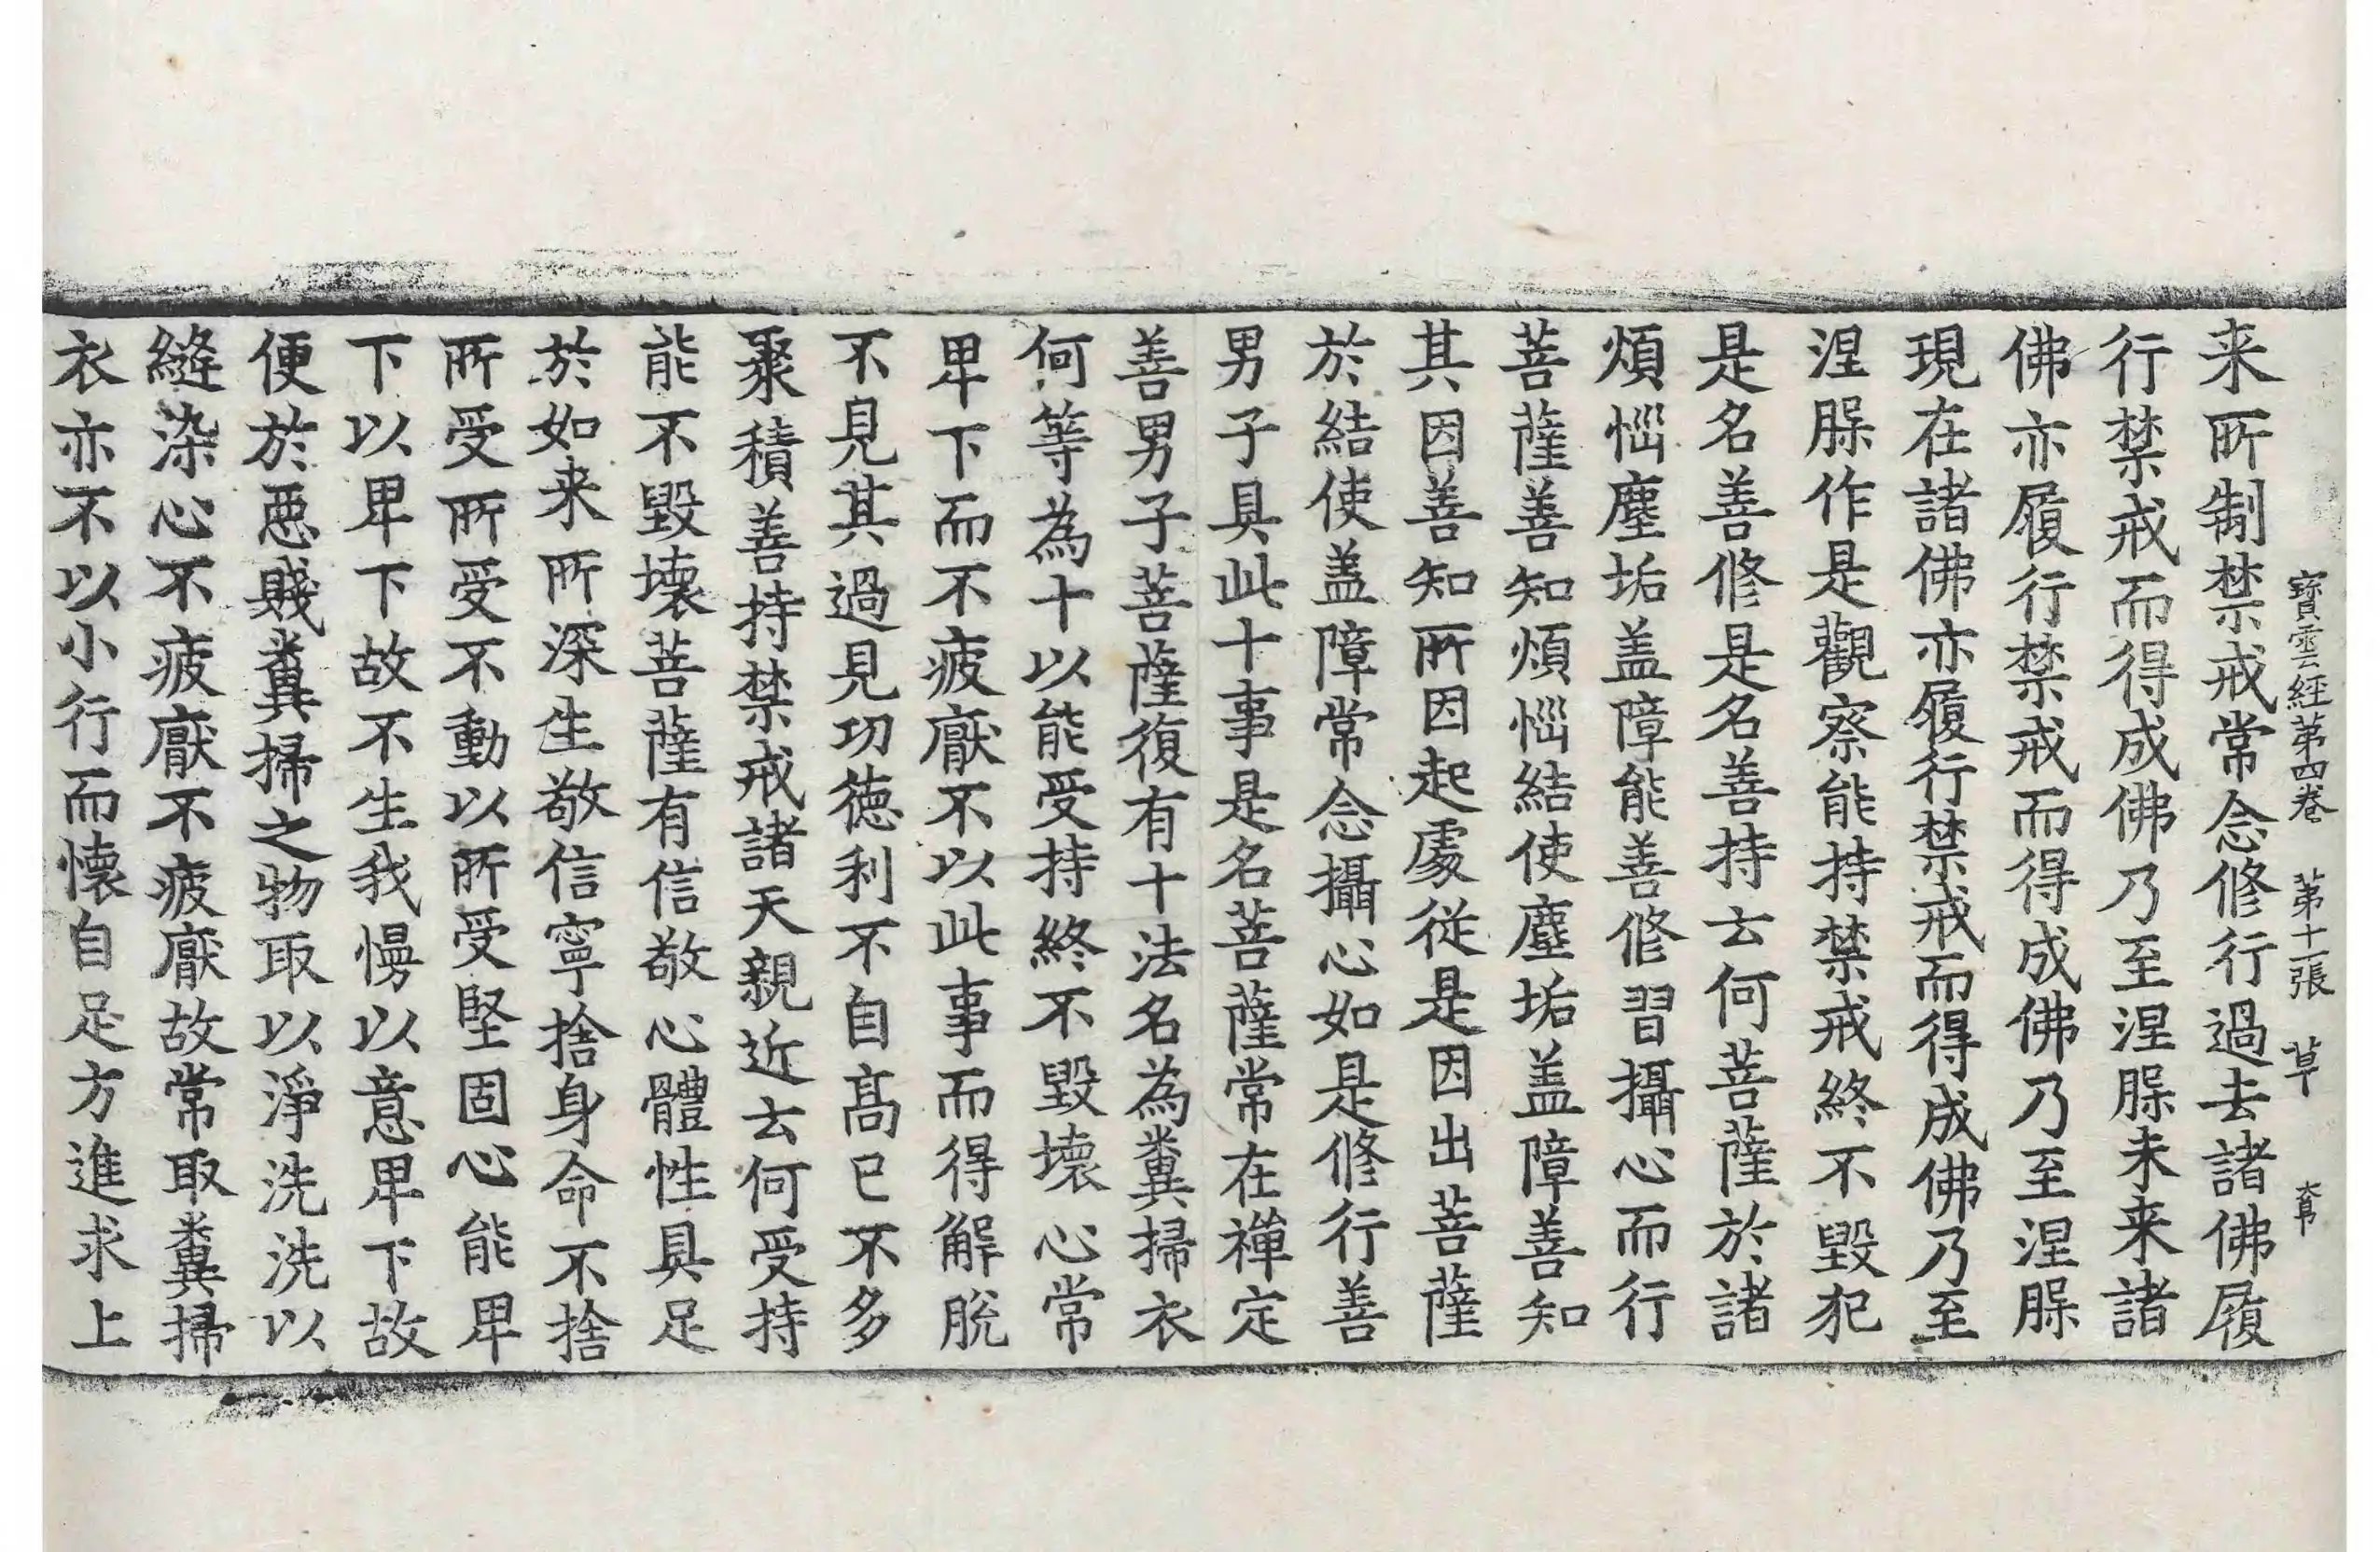 寳雲經苐四卷 苐十一張 草
来所制禁戒常念修行過去諸佛履
行禁戒而得成佛乃至涅脲未来諸
佛亦履行禁戒而得成佛乃至涅脲
現在諸佛亦履行禁戒而得成佛乃至
涅脲作是觀察能持禁戒終不毀犯
是名善修是名善持云何菩薩於諸
煩惱塵垢盖障能善修習攝心而行
菩薩善知煩惱結使塵垢盖障善知
其因善知所因起處從是因出菩薩
於結使盖障常念攝心如是修行善
男子具此十事是名菩薩常在禪定
善男子菩薩復有十法名為糞掃衣
何等為十以能受持終不毀壞心常
卑下而不疲厭不以此事而得解脫
不見其過見功徳利不自髙已不多
聚積善持禁戒諸天親近云何受持
能不毀壞菩薩有信敬心體性具足
於如来所深生敬信寧捨身命不捨
所受所受不動以所受堅固心能卑
下以卑下故不生我慢以意卑下故
便於惡賤糞掃之物取以淨洗洗以
縫染心不疲厭不疲厭故常取糞掃
衣亦不以小行而懷自足方進求上